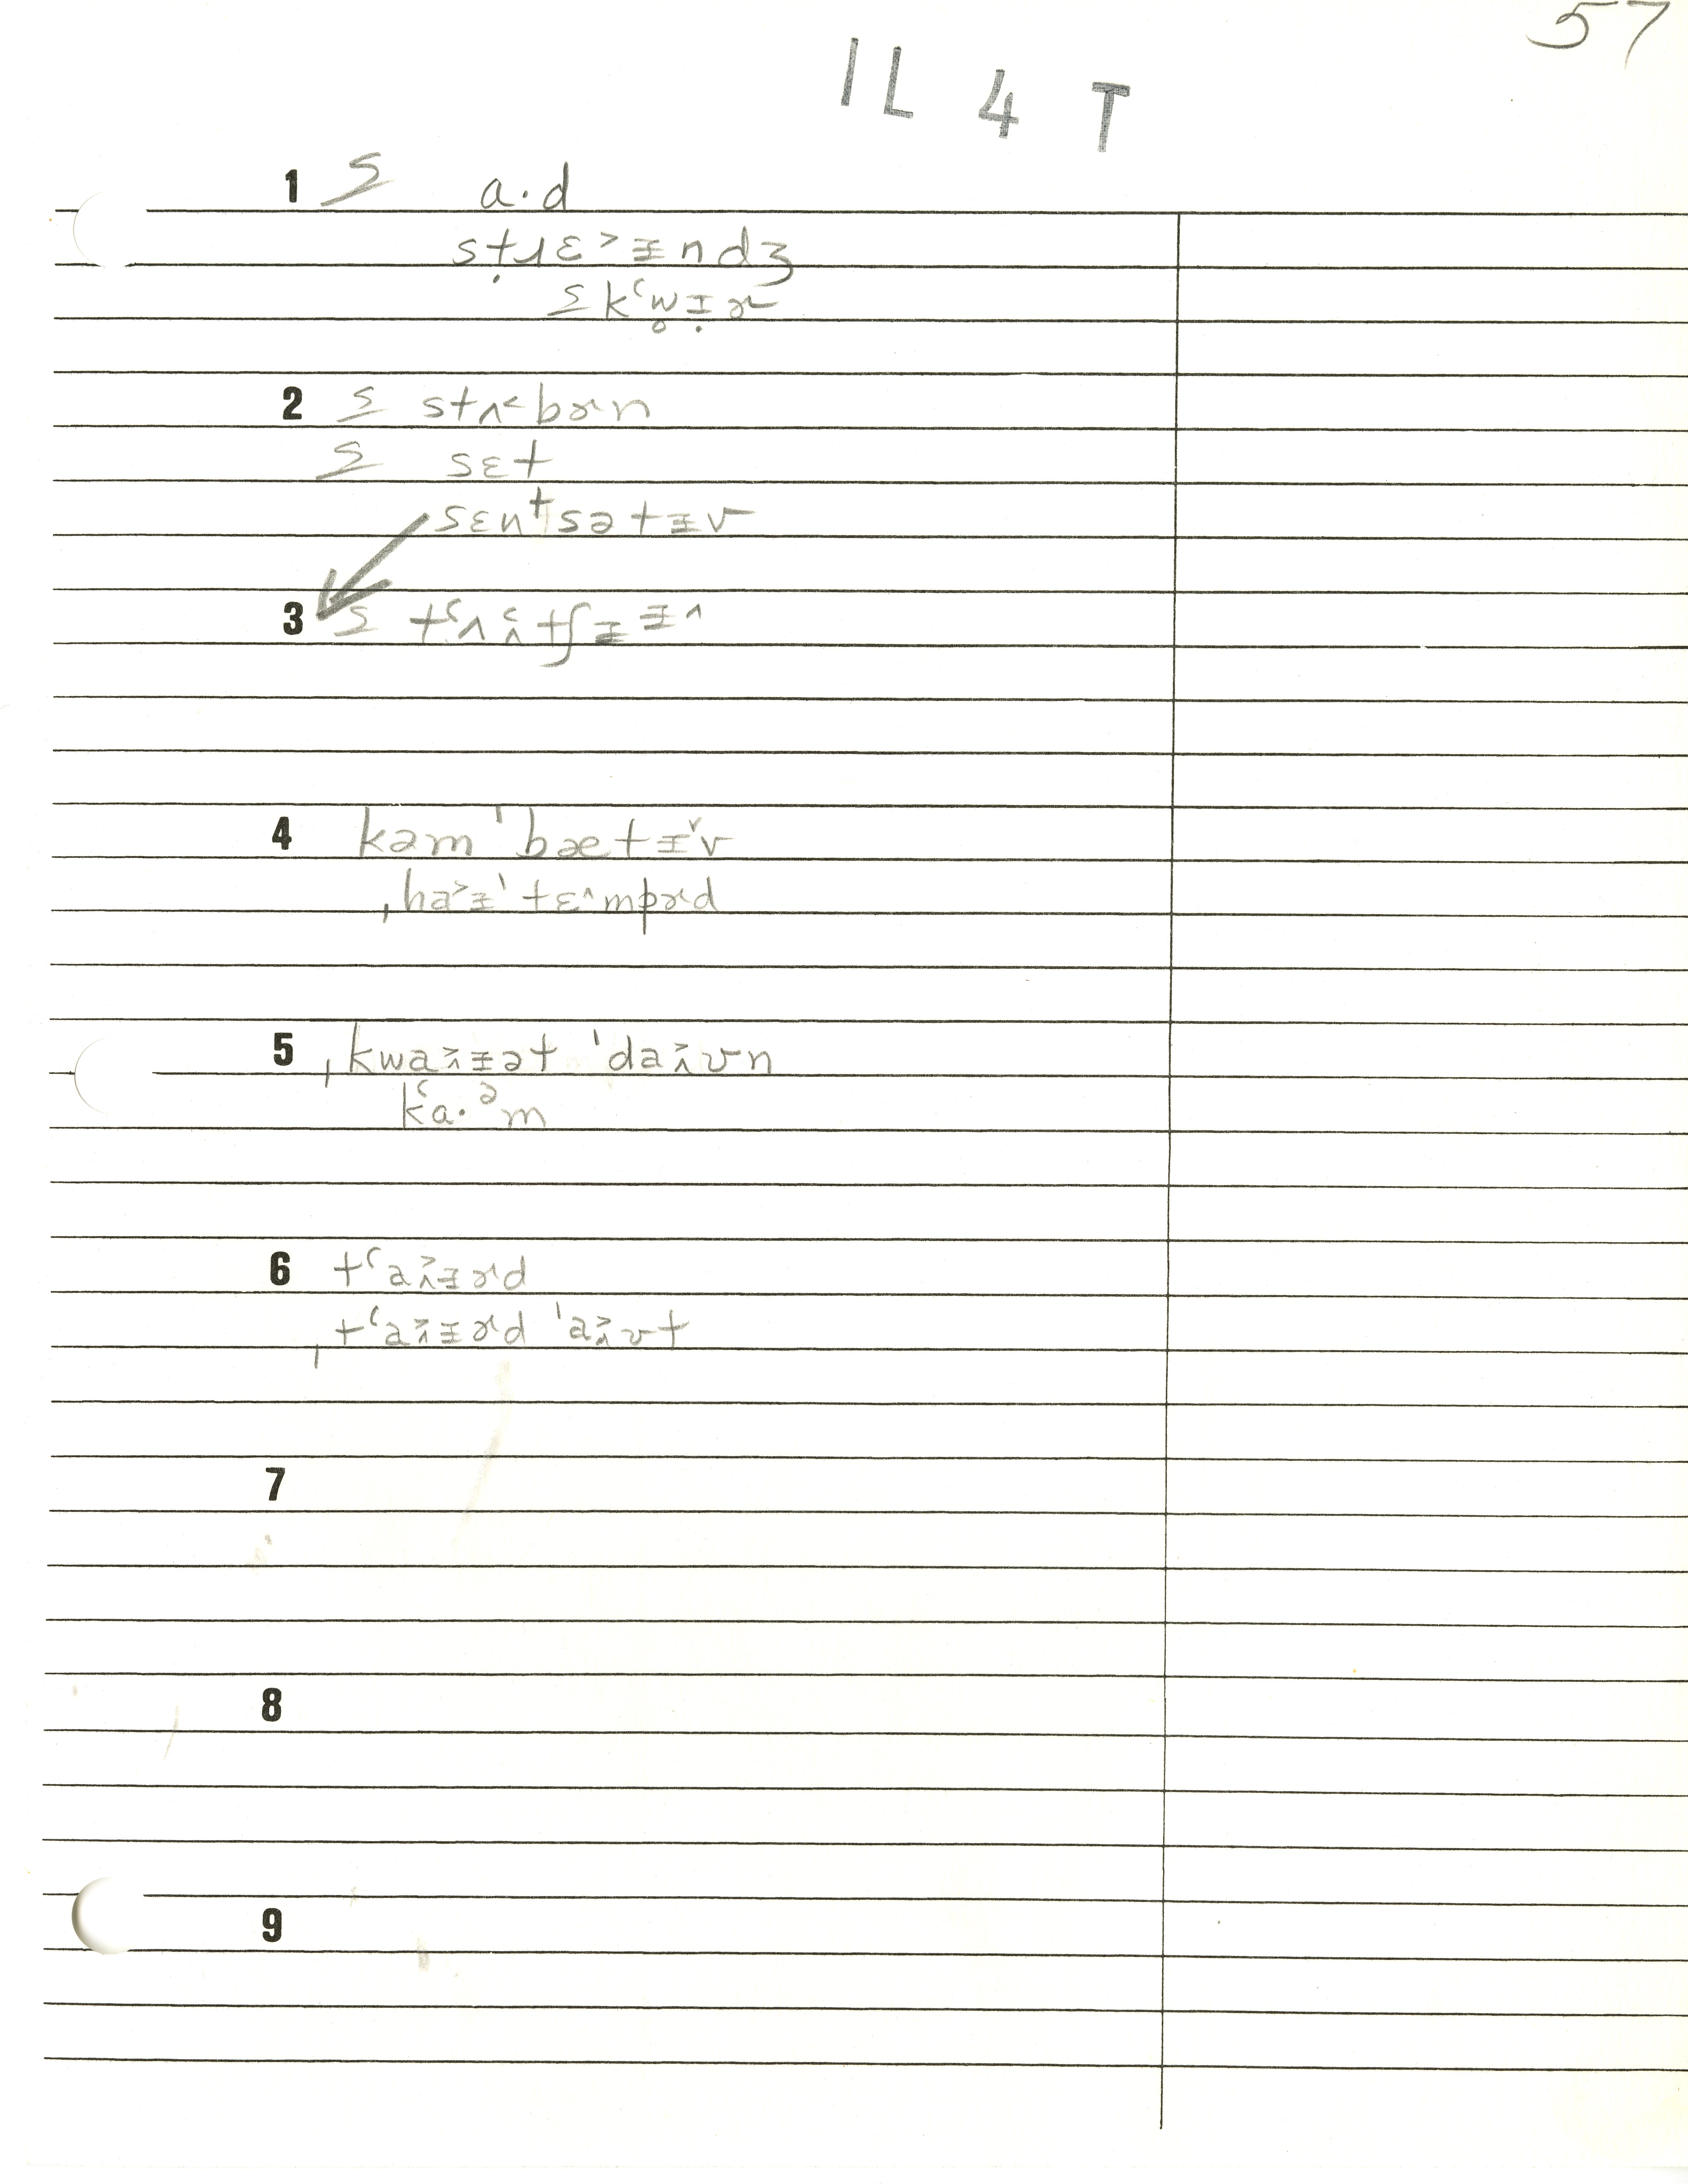 57
IL 4 T
1 S a·d
stɹɛ˃ɪndʒ
S kʻw̥ɪ̣ɚ
2 S stʌ˂bɚn
S sɛt
sɛnᵗsətɪv
3 S tʻʌtʃɪ
4 kəm ˈbætɪ˅v
ˌhaɪˈtɛ˄mpɚd
5 ˌkwaɪət ˈdaʊn
kʻa·ᵊm
6 tʻaɪɚd
ˌtʻaɪɚd ˈaʊt
7
8
9